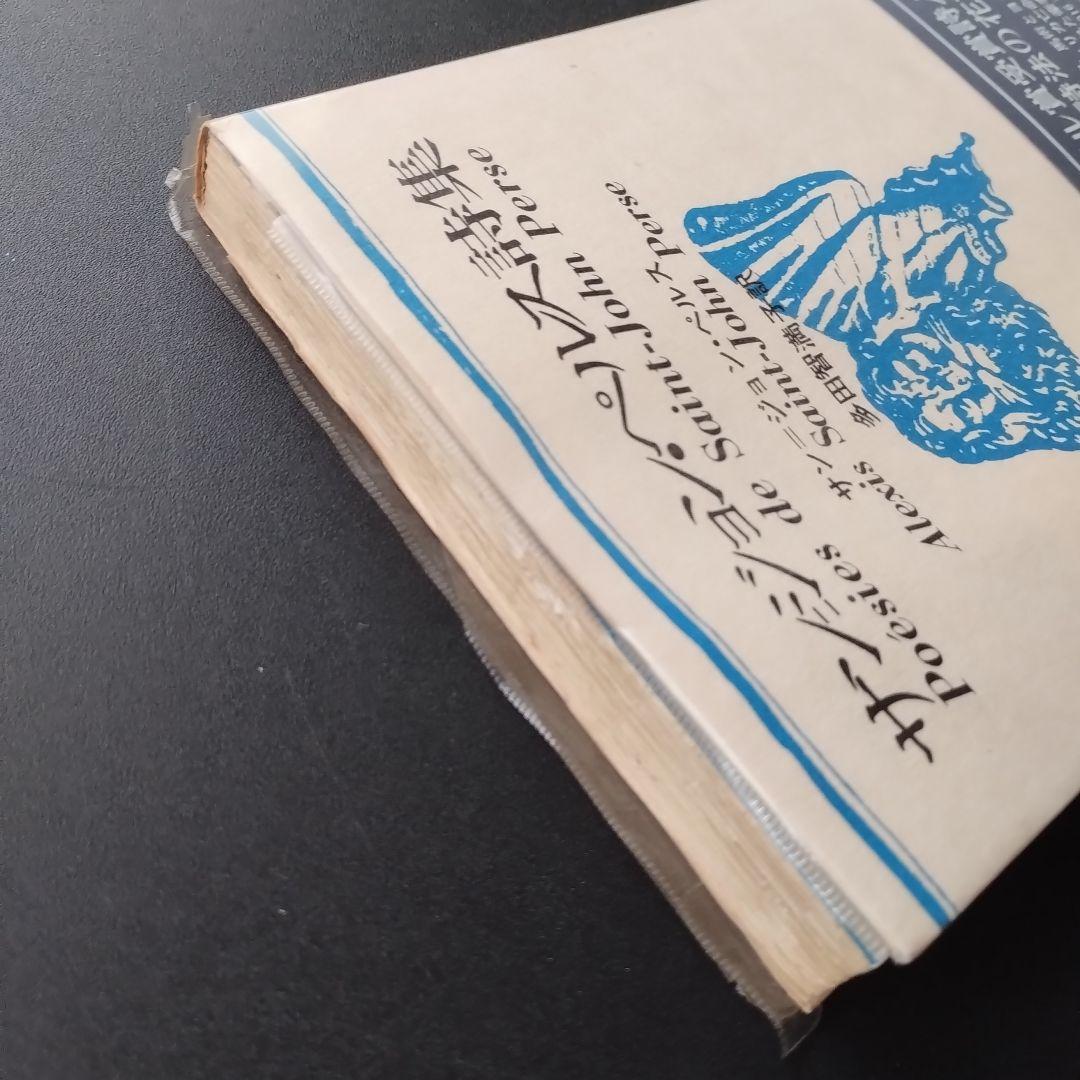 サン=ジョン・ペルス詩集
Poésies de Saint-John Perse
サン=ジョン・ペルス
Alexis Saint-John Perse
多田智満子訳